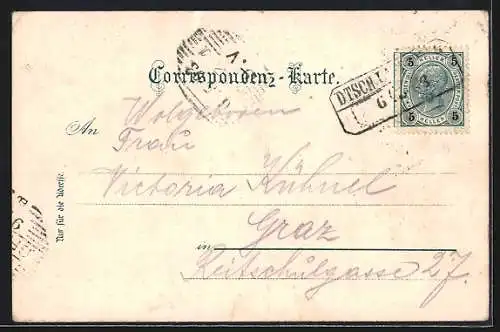 Correspondenz-Karte.
DTSCH.L
6
5 KELLER 5
5 KELLER 5
Wolgeboren
An Frau
Victoria Kühnel
Graz
in
Reitschulgasse 27.
Nur für die Adresse.